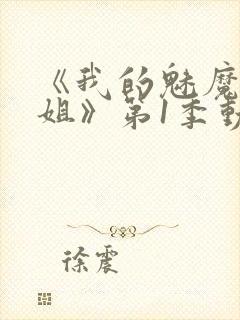 《我的魅魔
姐》第1季動
徐震